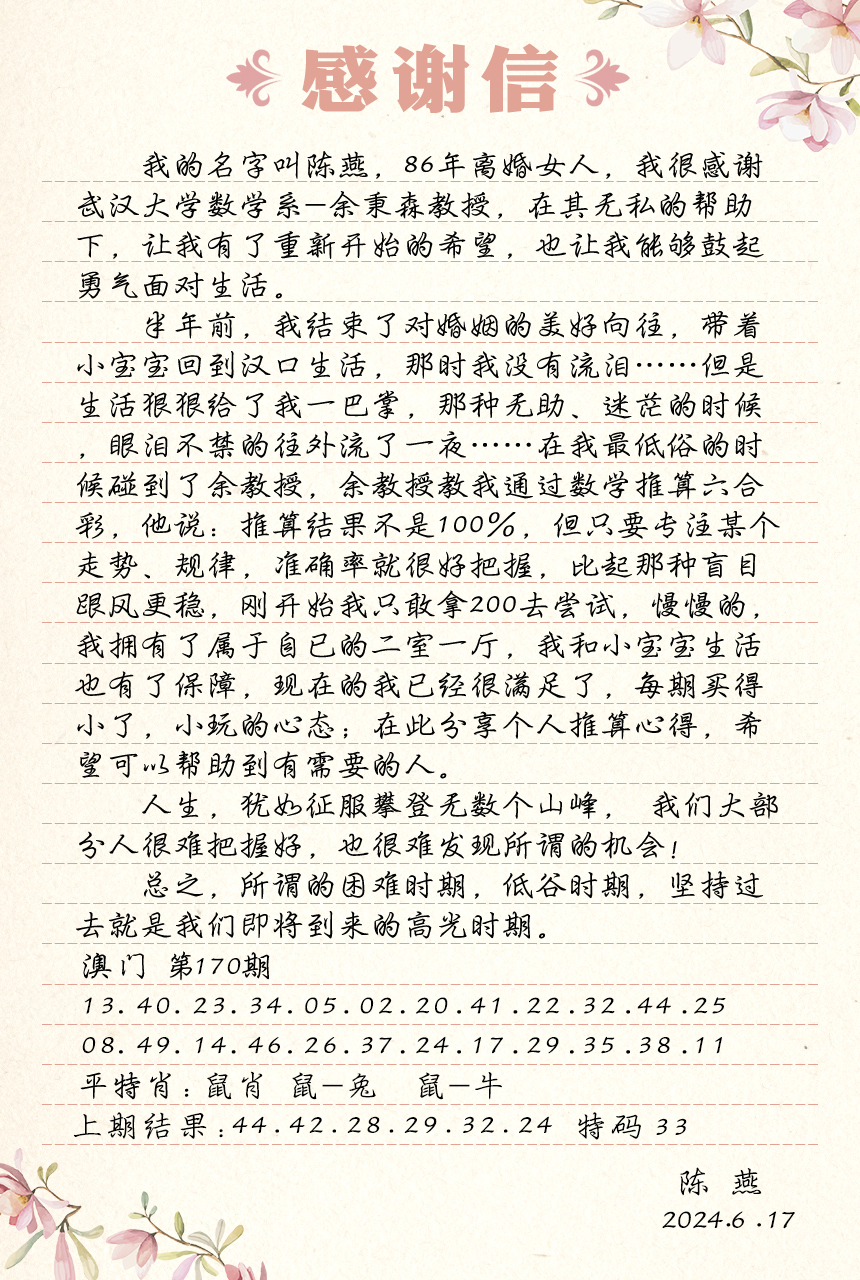 感谢信
我的名字叫陈燕，86年离婚女人，我很感谢
武汉大学数学系—余秉森教授，在其无私的帮助
下，让我有了重新开始的希望，也让我能够鼓起
勇气面对生活。
半年前，我结束了对婚姻的美好向往，带着
小宝宝回到汉口生活，那时我没有流泪……但是
生活狠狠给了我一巴掌，那种无助、迷茫的时候
，眼泪不禁的往外流了一夜……在我最低俗的时
候碰到了余教授，余教授教我通过数学推算六合
彩，他说：推算结果不是100%，但只要专注某个
走势、规律，准确率就很好把握，比起那种盲目
跟风更稳，刚开始我只敢拿200去尝试，慢慢的，
我拥有了属于自己的二室一厅，我和小宝宝生活
也有了保障，现在的我已经很满足了，每期买得
小了，小玩的心态；在此分享个人推算心得，希
望可以帮助到有需要的人。
人生，犹如征服攀登无数个山峰， 我们大部
分人很难把握好，也很难发现所谓的机会！
总之，所谓的困难时期，低谷时期，坚持过
去就是我们即将到来的高光时期。
澳门 第170期
13.40.23.34.05.02.20.41.22.32.44.25
08.49.14.46.26.37.24.17.29.35.38.11
平特肖：鼠肖 鼠—兔 鼠—牛
上期结果：44.42.28.29.32.24 特码 33
陈 燕
2024.6.17